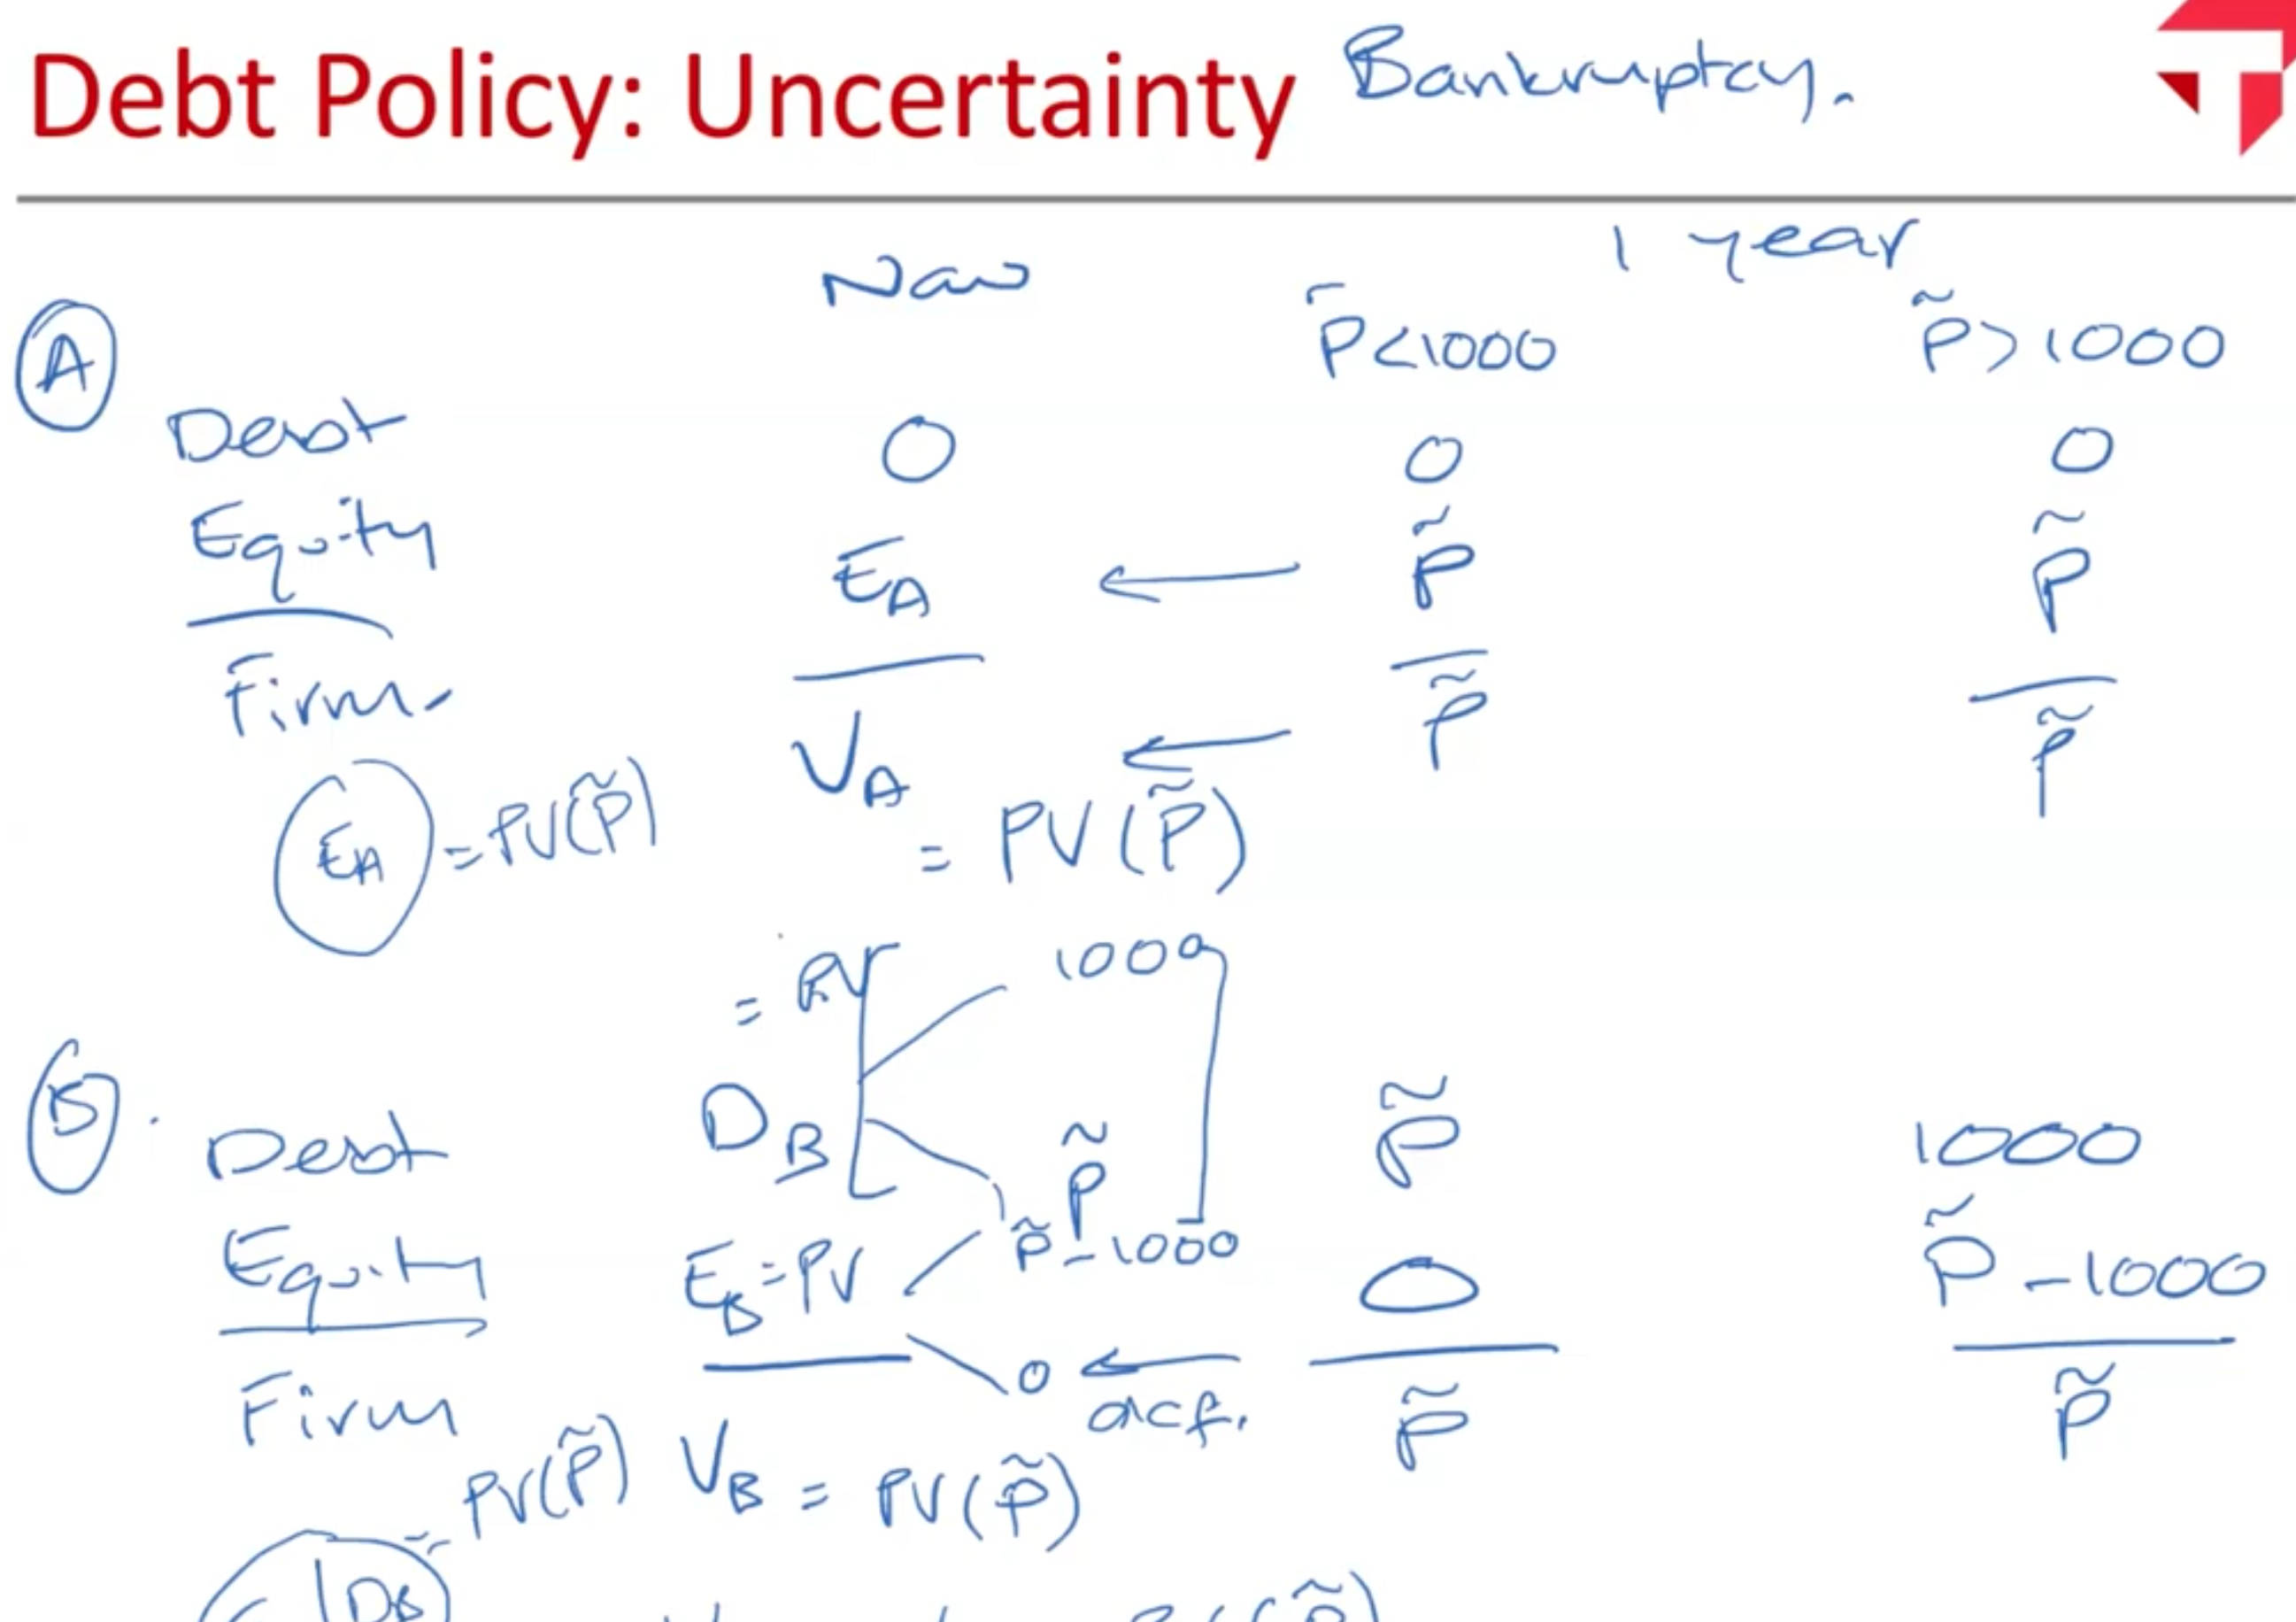 Debt Policy: Uncertainty Bankruptcy.
Now 1 year
P̃<1000 P̃>1000
A
Debt 0 0 0
Equity E_A ← P̃ P̃
Firm. V_A ← P̃ P̃
E_A = PV(P̃) = PV(P̃)
= PV 1000
B. Debt D_B P̃ P̃ 1000
Equity E_B = PV P̃-1000 0 P̃-1000
0 ← acf.
Firm P̃ P̃
PV(P̃) V_B = PV(P̃)
= D_B